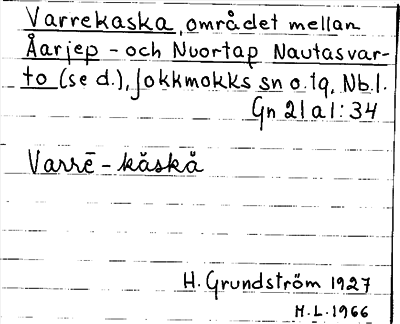 Varrekaska, området mellan
Åarjep - och Nuortap Nautasvar-
to (se d.), Jokkmokks sn o. tg, Nb.l.
Gn 21 a1: 34
Varrē - kăskă
H. Grundström 1927
H.L. 1966